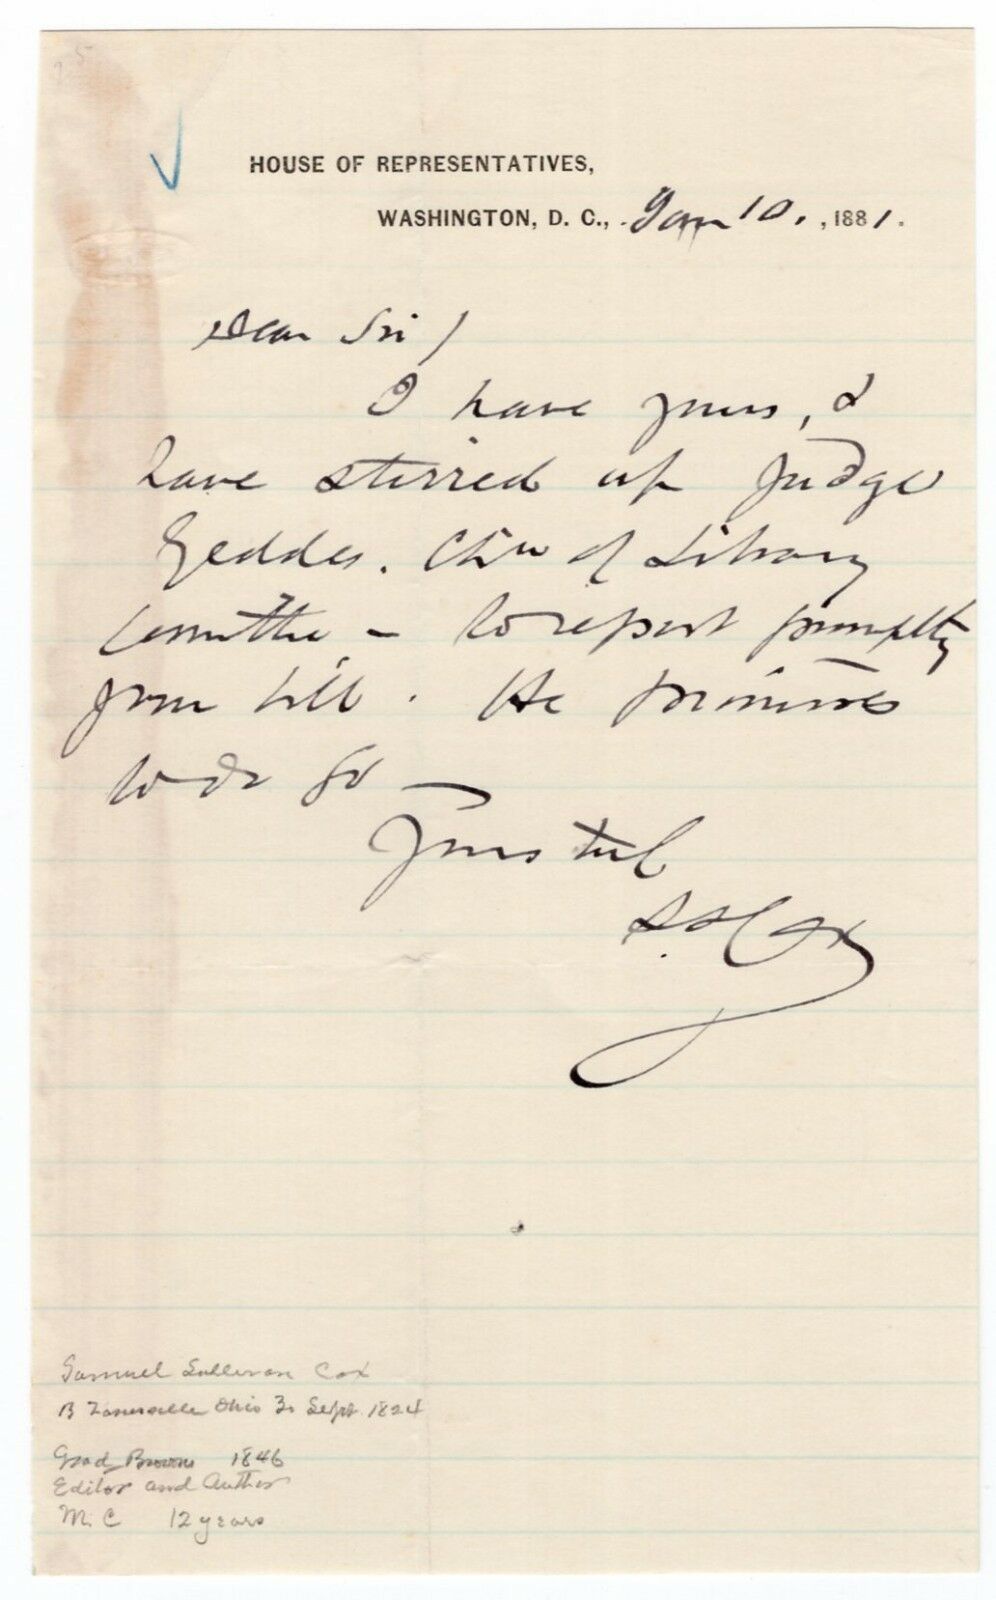 HOUSE OF REPRESENTATIVES,
WASHINGTON, D. C., Jan 10, 1881.
Dear Sir /
I have yours, &
have stirred up Judge
Geddes. Chn of Library
Committee – to report promptly
your bill. He promises
to do so —
Yours truly
S. S. Cox
Samuel Sullivan Cox
B Zanesville Ohio 30 Sept. 1824
Grad Brown 1846
Editor and Author
M. C 12 years